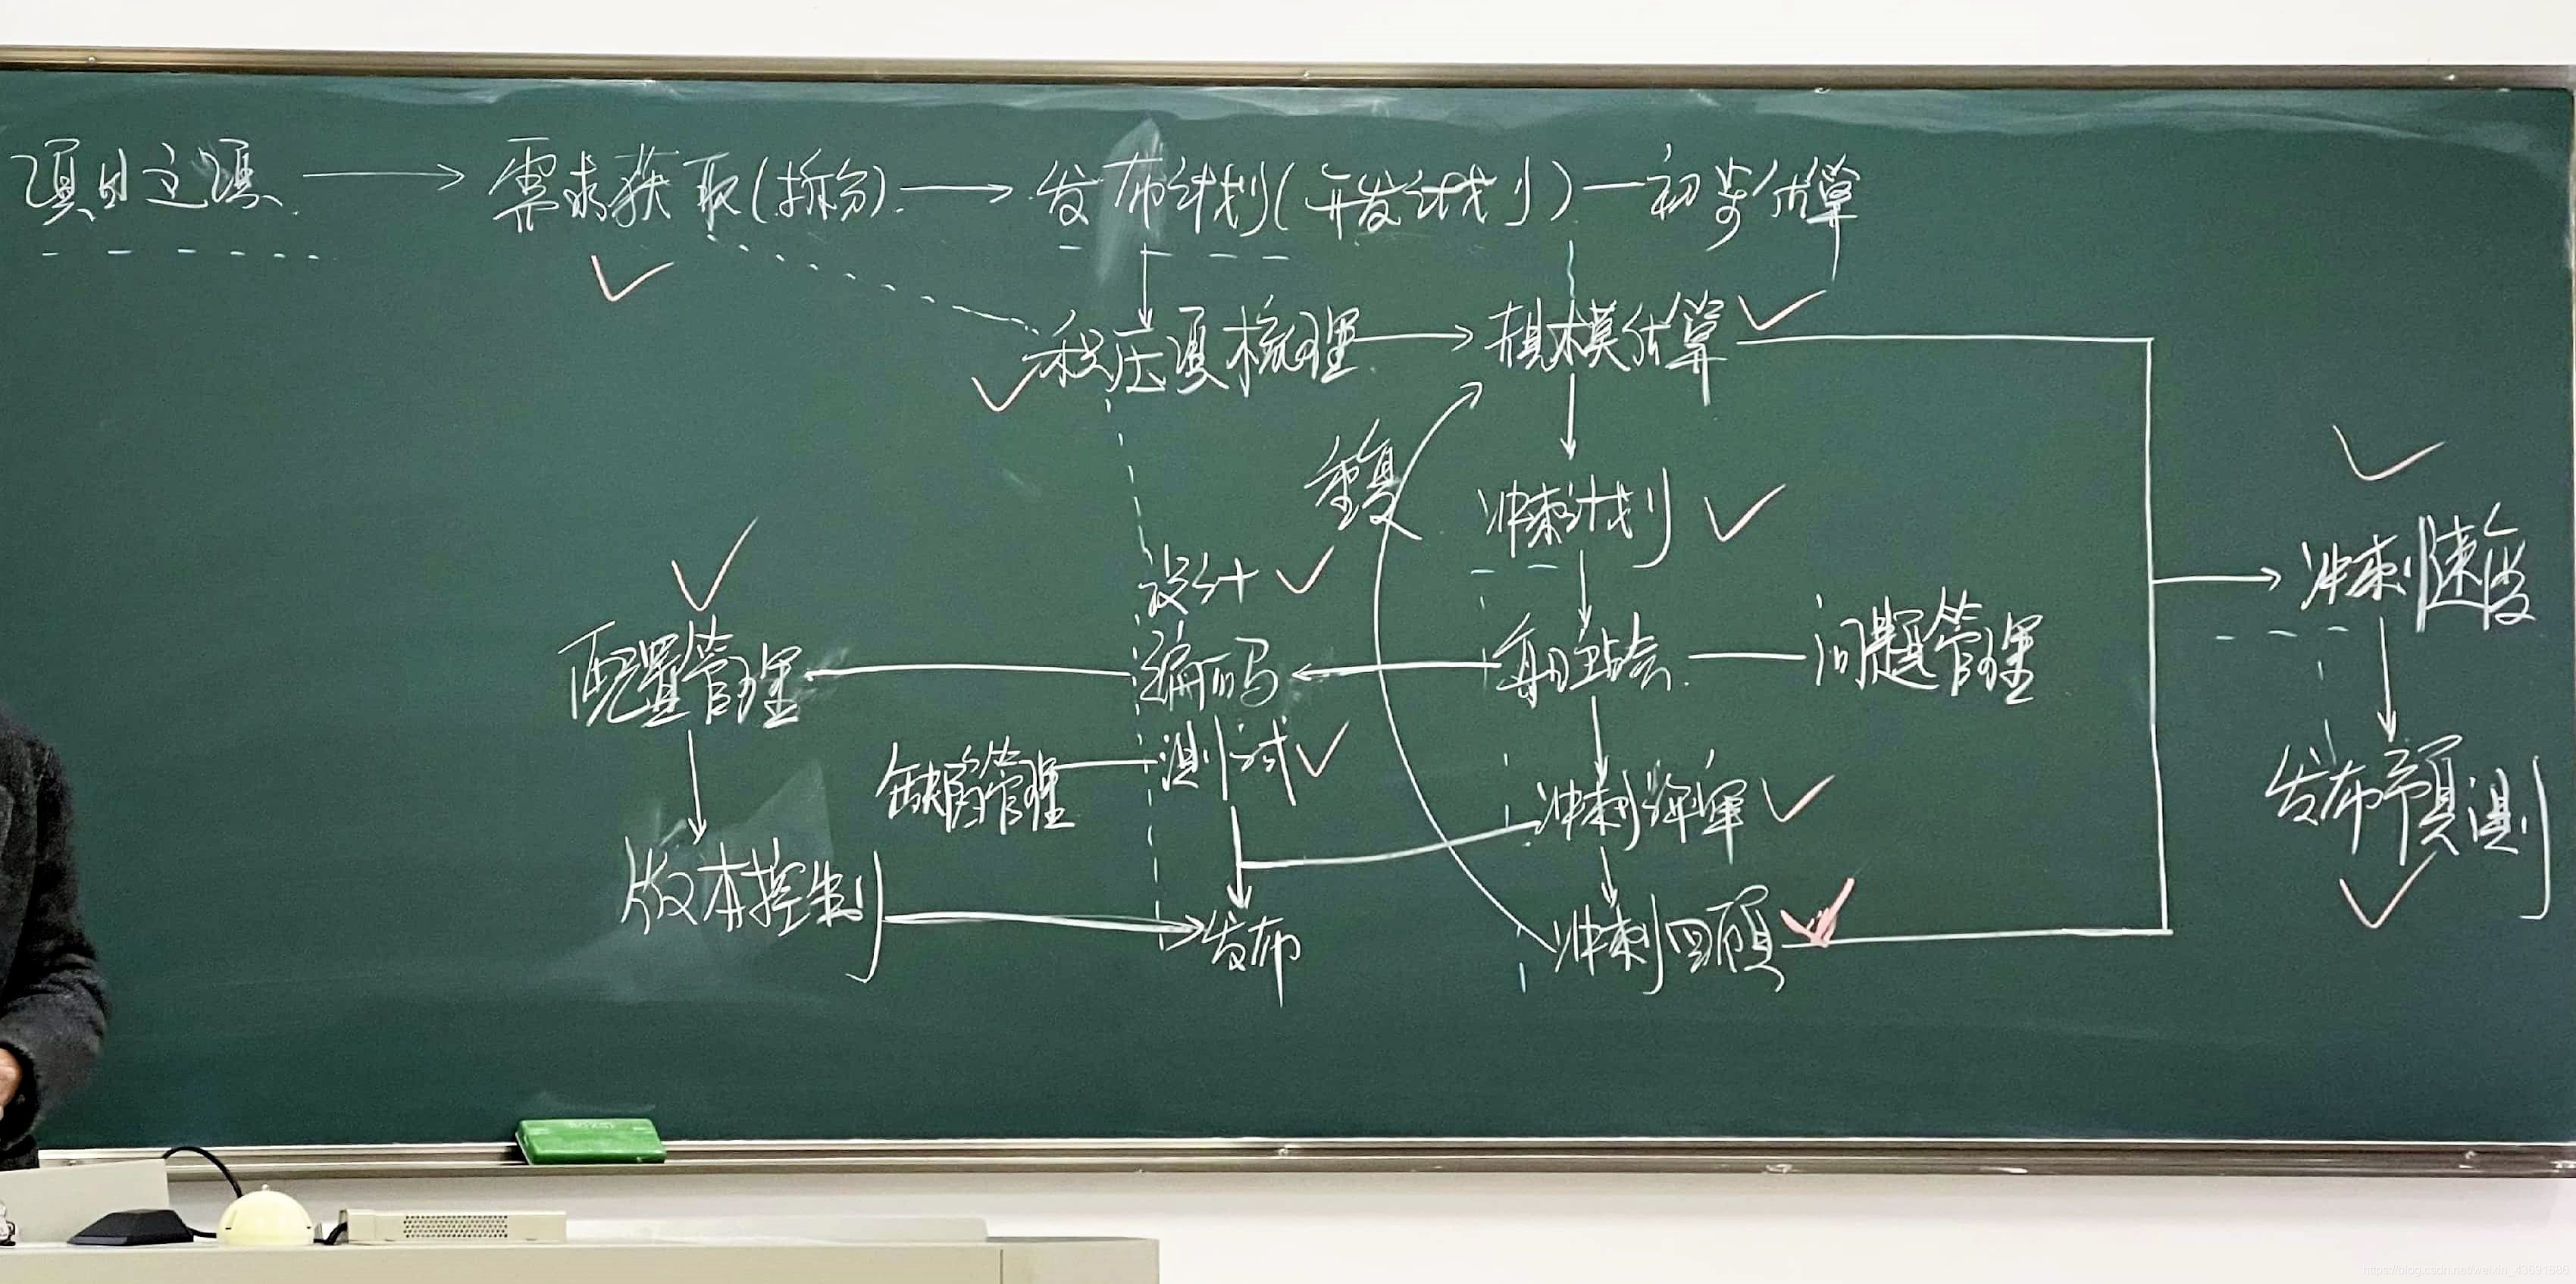 项目立项 需求获取(拆分) 发布计划(开发计划) 初步估算
积压项梳理 规模估算
重复
冲刺计划
设计
冲刺速度
配置管理 编码 每日站会 问题管理
缺陷管理 测试
发布预测
冲刺评审
版本控制
发布 冲刺回顾